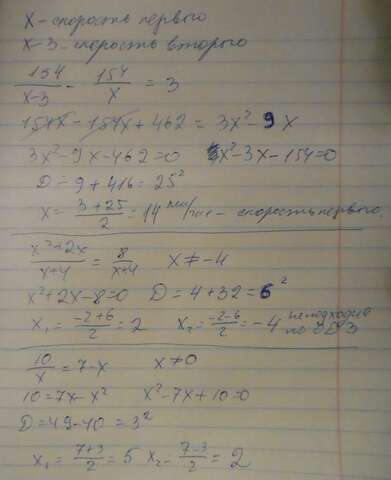 x - скорость первого
x-3 - скорость второго
154/(x-3) - 154/x = 3
154x - 154x + 462 = 3x² - 9x
3x² - 9x - 462 = 0   x² - 3x - 154 = 0
D = 9 + 416 = 25²
x = (3+25)/2 = 14 км/час - скорость первого.
(x²+2x)/(x+4) = 8/(x+4)   x ≠ -4
x² + 2x - 8 = 0   D = 4 + 32 = 6²
x₁ = (-2+6)/2 = 2   x₂ = (-2-6)/2 = -4 не подходит по ОДЗ
10/x = 7 - x   x ≠ 0
10 = 7x - x²   x² - 7x + 10 = 0
D = 49 - 40 = 3²
x₁ = (7+3)/2 = 5   x₂ = (7-3)/2 = 2